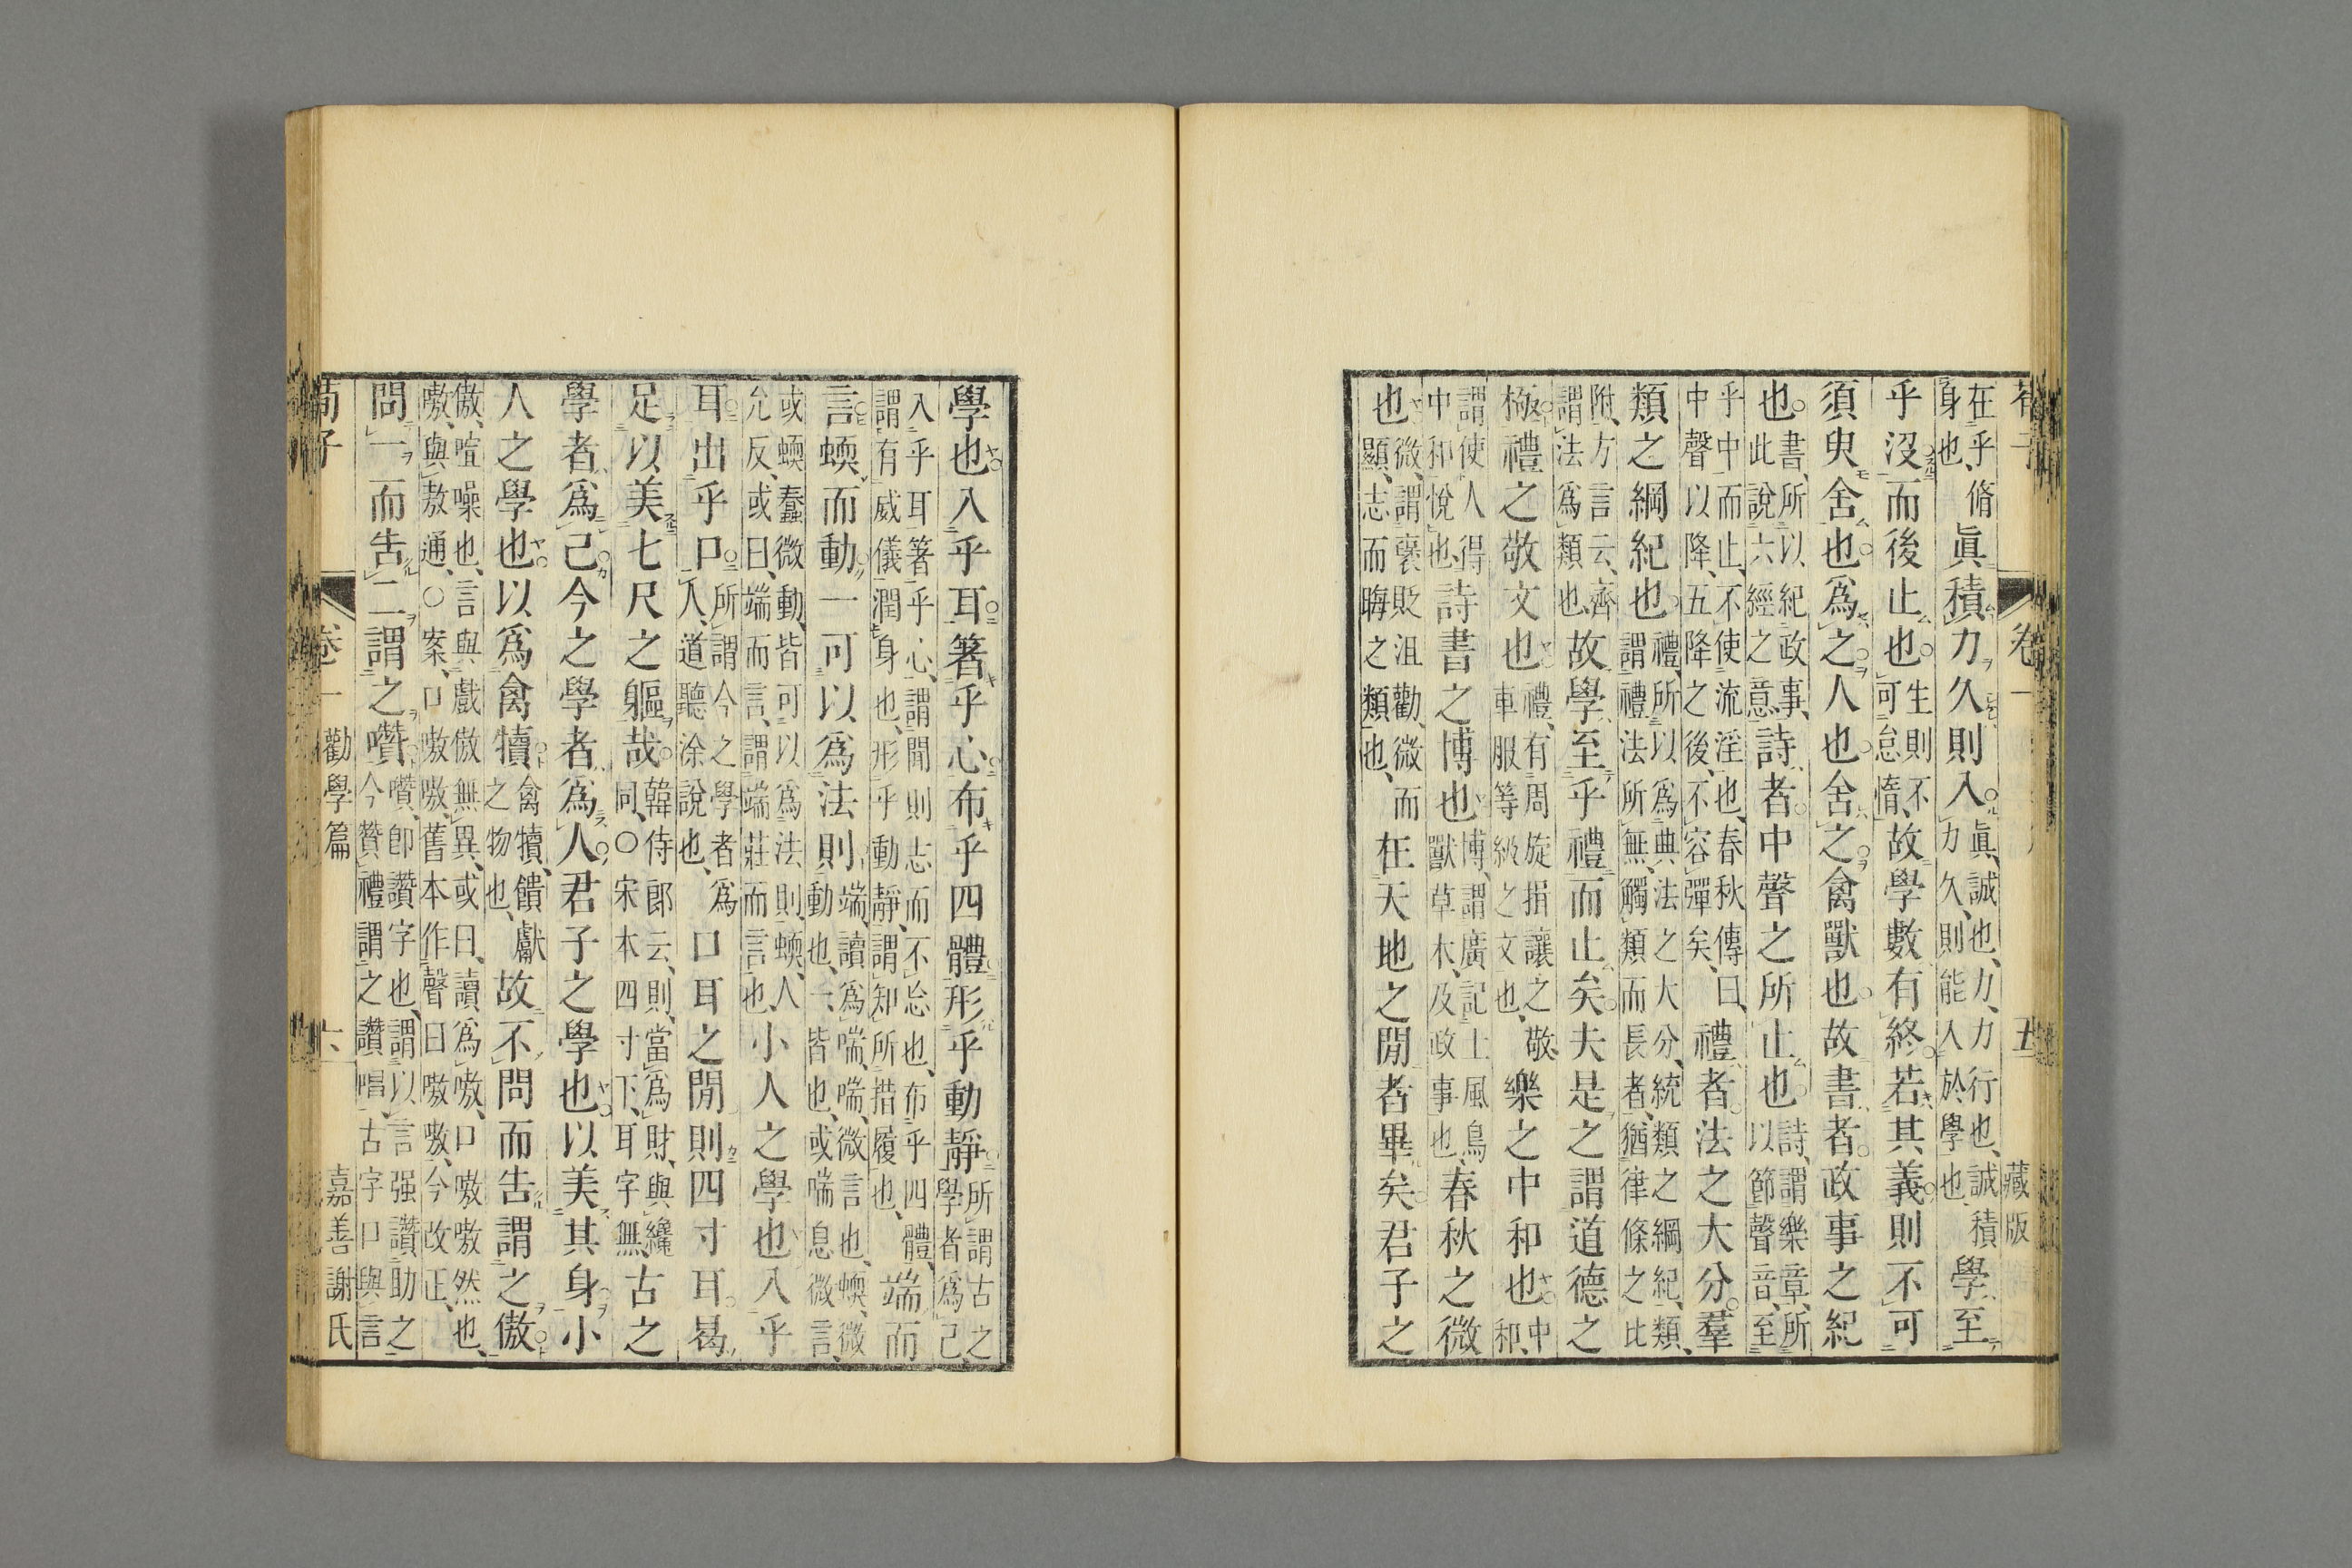 荀子 卷一 五 藏版
在乎脩身也、眞積力久則入眞、誠也、力、力行也、誠積力久、則能入於學也、學至
乎沒而後止也生則不可怠惰、故學數有終若其義則不可
須臾舍也爲之人也舍之禽獸也故書者政事之紀
也書、所以紀政事、此說六經之意詩者中聲之所止也詩、謂樂章、所以節聲音、至
乎中而止、不使流淫也、春秋傳曰、中聲以降、五降之後、不容彈矣、禮者法之大分羣
類之綱紀也禮、所以爲典法之大分、統類之綱紀、類、謂禮法所無、觸類而長者、猶律條之比
附、方言云、齊謂法爲類也、故學至乎禮而止矣夫是之謂道德之
極禮之敬文也禮、有周旋揖讓之敬、車服等級之文也、樂之中和也中和、
謂使人得中和悅也、詩書之博也博、謂廣記土風鳥獸草木、及政事也、春秋之微
也微、謂褒貶沮勸、微而顯、志而晦之類也、在天地之閒者畢矣君子之
學也入乎耳箸乎心布乎四體形乎動靜所謂古之學者爲己、
入乎耳箸乎心、謂聞則志而不忘也、布乎四體、謂有威儀潤身也、形乎動靜、謂知所措履也、端而
言蝡而動一可以爲法則端、讀爲喘、喘、微言也、蝡、微動也、一、皆也、或喘息微言、
或蝡蠢微動、皆可以爲法則、蝡、人允反、或曰、端而言、謂端莊而言也、小人之學也入乎
耳出乎口所謂今之學者爲人、道聽涂說也、口耳之閒則四寸耳曷
足以美七尺之軀哉韓侍郎云、則、當爲財、與纔同、○宋本四寸下、耳字無、古之
學者爲己今之學者爲人君子之學也以美其身小
人之學也以爲禽犢禽犢、饋獻之物也、故不問而告謂之傲
傲、喧噪也、言與戲傲無異、或曰、讀爲嗷、口嗷嗷然也、嗷、與敖通、○案、口嗷嗷、舊本作聲曰嗷嗷、今改正、
問一而告二謂之囋囋、卽讚字也、謂以言强讚助之、今贊禮謂之讚唱、古字口與言
荀子 卷一 勸學篇 六 嘉善謝氏